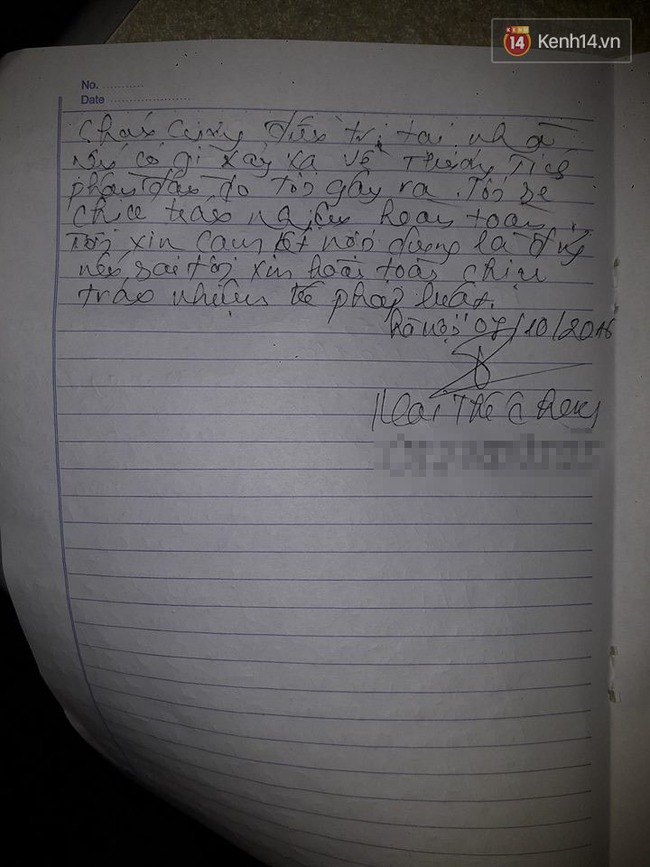 KENH 14 Kenh14.vn
No. ............
Date ........................
Cháu Cũng điều trị tại nhà
nếu có gì xảy ra về Thương Tích
phần đầu do Tôi gây ra. Tôi sẽ
chịu trách nhiệm hoàn toàn
Tôi xin cam kết nội dung là đúng
nếu sai tôi xin hoàn toàn chịu
trách nhiệm tr pháp luật.
hà nội 07/10/2016
Thế